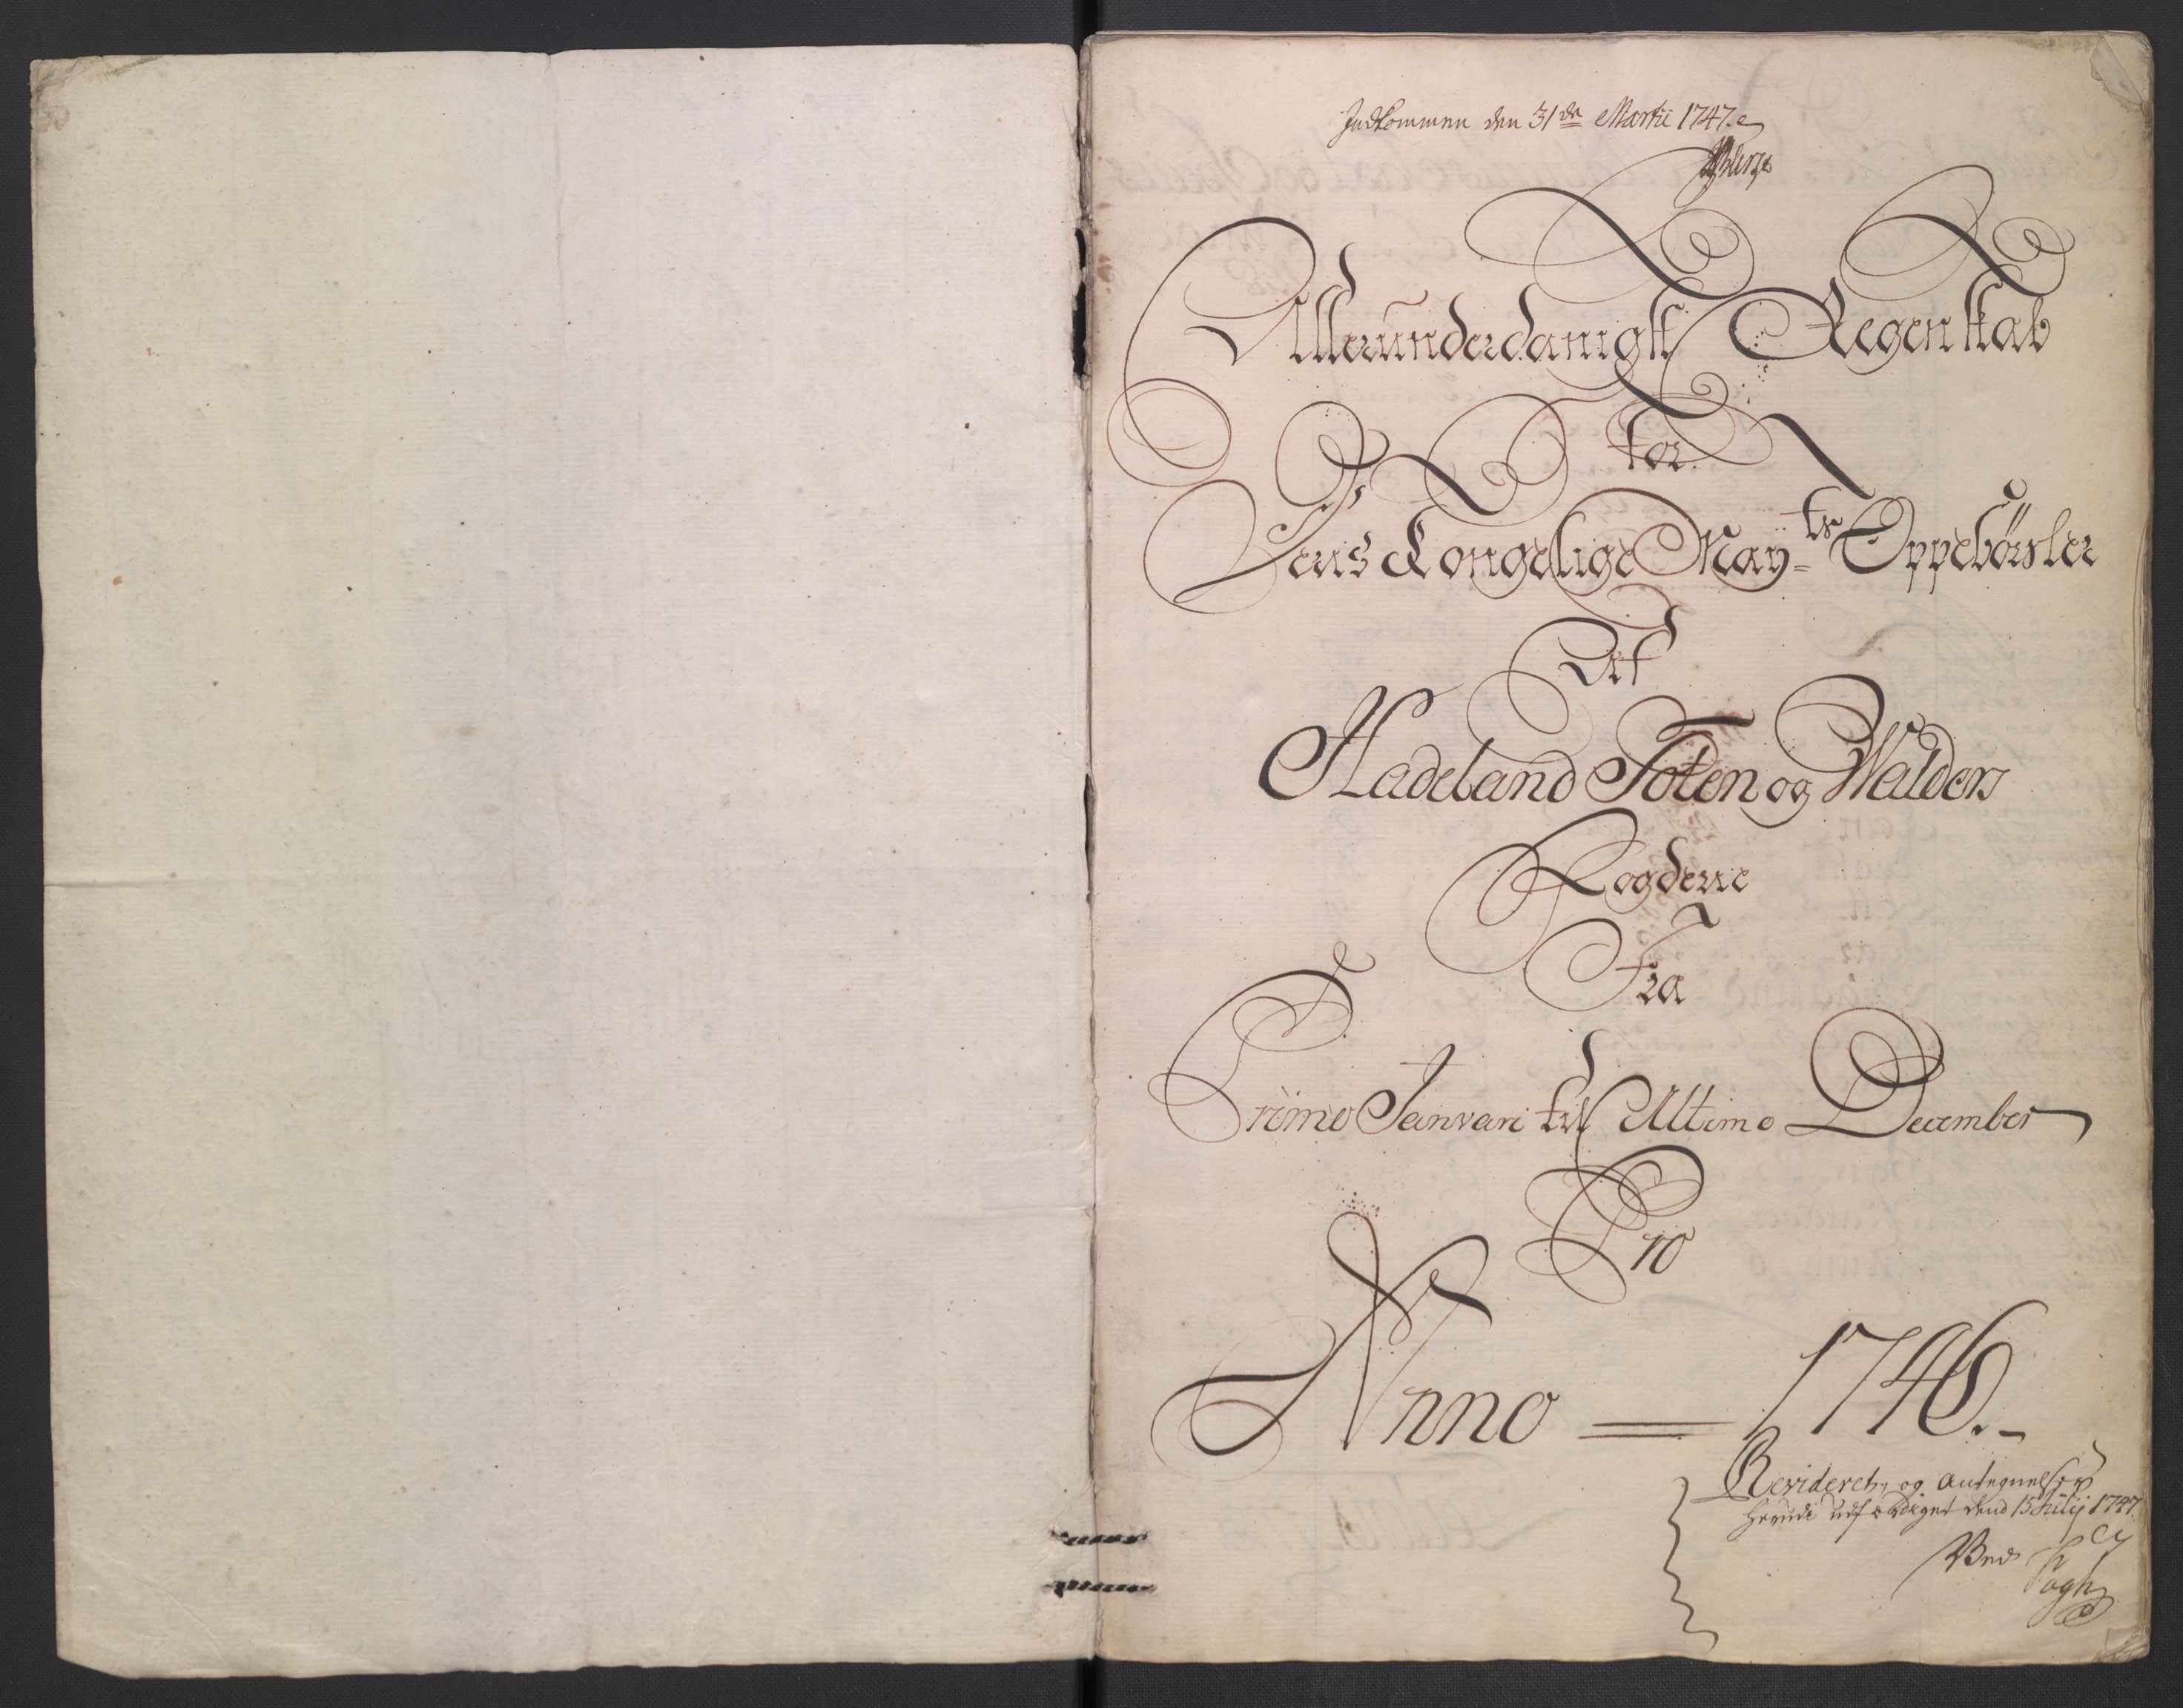 Indkommen den 31de Martii 1747.
Allerunderdanigst Regenskab
for
Deris Kongelige May=ts Oppebørsler
Af
Hadeland Toten og Walders
Fogderie
Fra
Primo Janvari til Ultimo December
Pro
Anno = 1746.-
Revideret, og Antegnelser
herudi udfærdiget dend 15 Julij 1747.
Ved